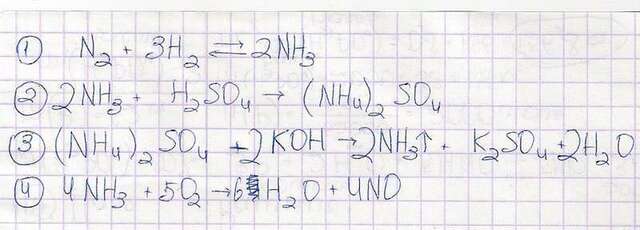 ① N₂ + 3H₂ ⇌ 2NH₃
② 2NH₃ + H₂SO₄ → (NH₄)₂ SO₄
③ (NH₄)₂ SO₄ + 2KOH → 2NH₃↑ + K₂SO₄ + 2H₂O
④ 4NH₃ + 5O₂ → 6H₂O + 4NO